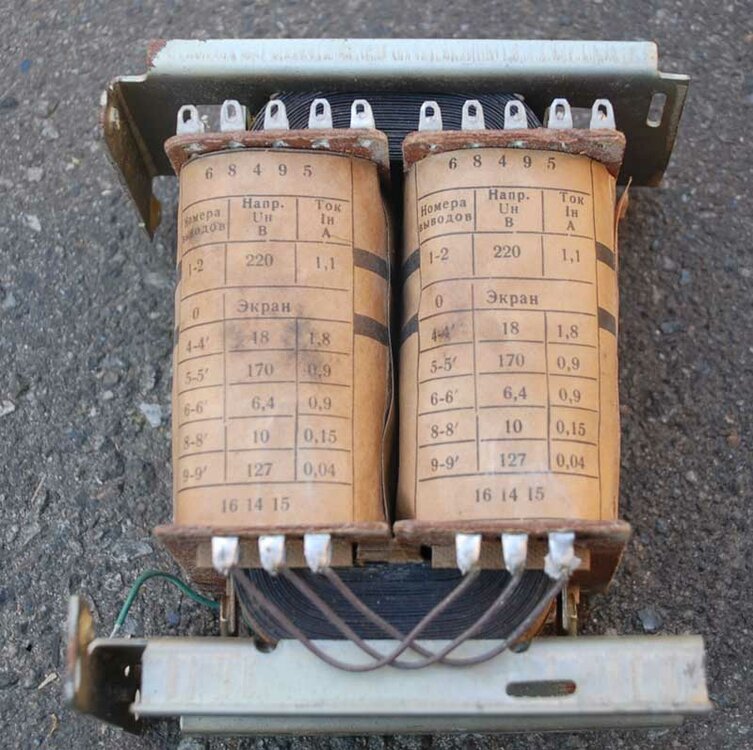 6 8 4 9 5
Номера выводов Напр. Uн В Ток Iн А
1-2 220 1,1
0 Экран
4-4' 18 1,8
5-5' 170 0,9
6-6' 6,4 0,9
8-8' 10 0,15
9-9' 127 0,04
16 14 15
6 8 4 9 5
Номера выводов Напр. Uн В Ток Iн А
1-2 220 1,1
0 Экран
4-4' 18 1,8
5-5' 170 0,9
6-6' 6,4 0,9
8-8' 10 0,15
9-9' 127 0,04
16 14 15